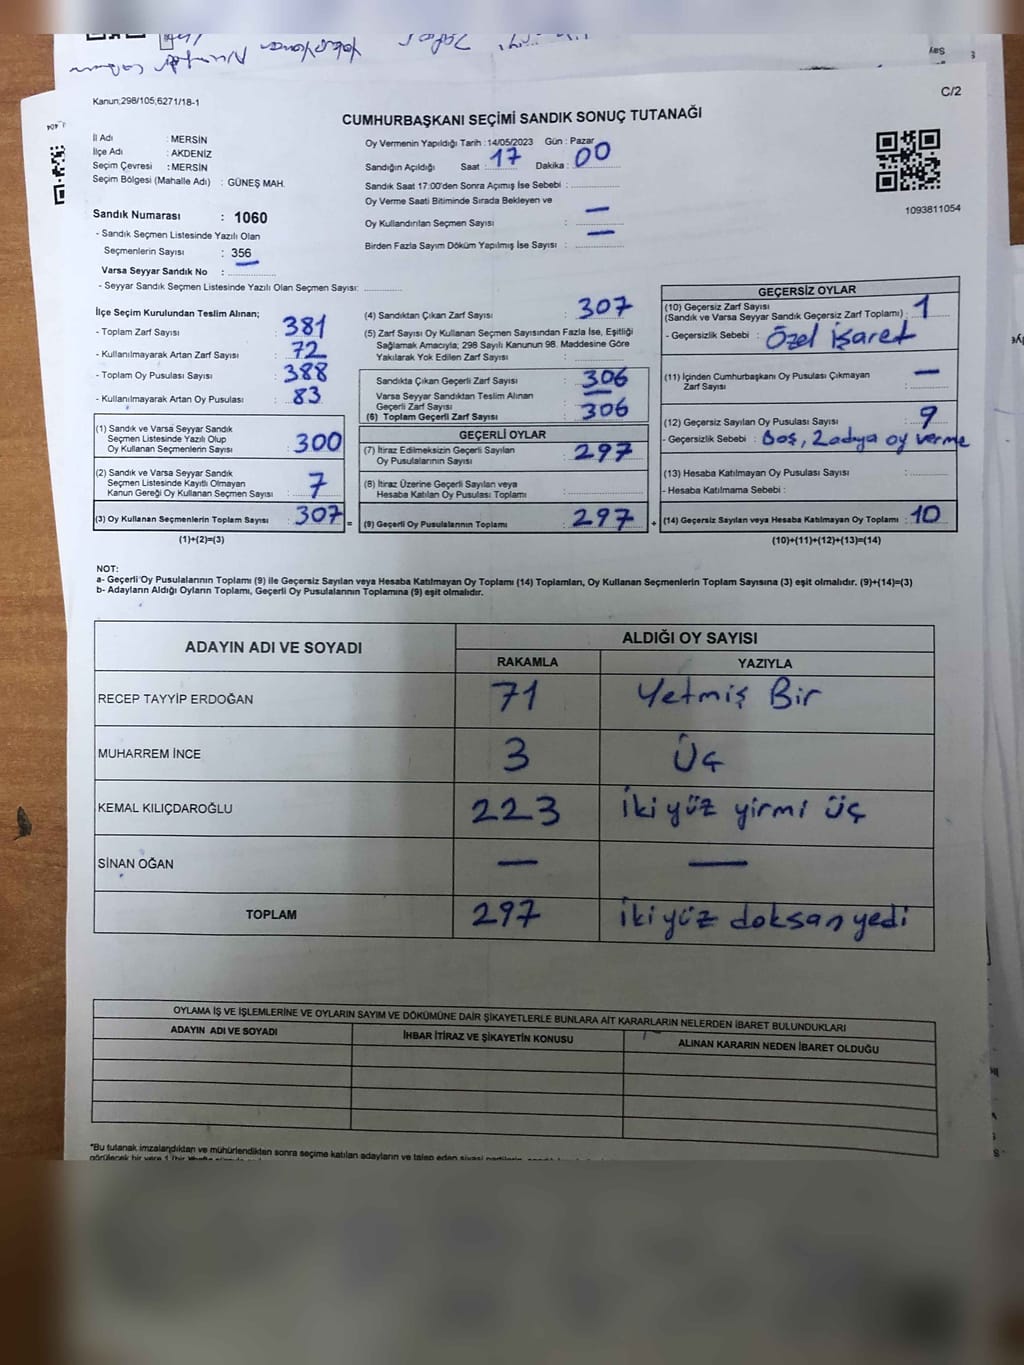 Kanun;298/105,6271/18-1
C/2
CUMHURBAŞKANI SEÇİMİ SANDIK SONUÇ TUTANAĞI
İl Adı : MERSİN
İlçe Adı : AKDENİZ
Seçim Çevresi : MERSİN
Seçim Bölgesi (Mahalle Adı) : GÜNEŞ MAH.
Sandık Numarası : 1060
- Sandık Seçmen Listesinde Yazılı Olan
Seçmenlerin Sayısı : 356
Varsa Seyyar Sandık No :
- Seyyar Sandık Seçmen Listesinde Yazılı Olan Seçmen Sayısı:
Oy Vermenin Yapıldığı Tarih : 14/05/2023 Gün : Pazar
Sandığın Açıldığı Saat : 17 Dakika : 00
Sandık Saat 17:00'den Sonra Açımış İse Sebebi :
Oy Verme Saati Bitiminde Sırada Bekleyen ve
Oy Kullandırılan Seçmen Sayısı : —
Birden Fazla Sayım Döküm Yapılmış İse Sayısı : —
1093811054
İlçe Seçim Kurulundan Teslim Alınan;
- Toplam Zarf Sayısı : 381
- Kullanılmayarak Artan Zarf Sayısı : 72
- Toplam Oy Pusulası Sayısı : 388
- Kullanılmayarak Artan Oy Pusulası : 83
(1) Sandık ve Varsa Seyyar Sandık
Seçmen Listesinde Yazılı Olup
Oy Kullanan Seçmenlerin Sayısı : 300
(2) Sandık ve Varsa Seyyar Sandık
Seçmen Listesinde Kayıtlı Olmayan
Kanun Gereği Oy Kullanan Seçmen Sayısı : 7
(3) Oy Kullanan Seçmenlerin Toplam Sayısı : 307 =
(1)+(2)=(3)
(4) Sandıktan Çıkan Zarf Sayısı : 307
(5) Zarf Sayısı Oy Kullanan Seçmen Sayısından Fazla İse, Eşitliği
Sağlamak Amacıyla; 298 Sayılı Kanunun 98. Maddesine Göre
Yakılarak Yok Edilen Zarf Sayısı :
Sandıkta Çıkan Geçerli Zarf Sayısı : 306
Varsa Seyyar Sandıktan Teslim Alınan
Geçerli Zarf Sayısı : —
(6) Toplam Geçerli Zarf Sayısı : 306
GEÇERLİ OYLAR
(7) İtiraz Edilmeksizin Geçerli Sayılan
Oy Pusulalarının Sayısı : 297
(8) İtiraz Üzerine Geçerli Sayılan veya
Hesaba Katılan Oy Pusulası Toplamı :
(9) Geçerli Oy Pusulalarının Toplamı : 297 +
GEÇERSİZ OYLAR
(10) Geçersiz Zarf Sayısı
(Sandık ve Varsa Seyyar Sandık Geçersiz Zarf Toplamı) : 1
- Geçersizlik Sebebi : Özel işaret
(11) İçinden Cumhurbaşkanı Oy Pusulası Çıkmayan
Zarf Sayısı : —
(12) Geçersiz Sayılan Oy Pusulası Sayısı : 9
- Geçersizlik Sebebi : Boş, 2 adya oy verme
(13) Hesaba Katılmayan Oy Pusulası Sayısı :
- Hesaba Katılmama Sebebi :
(14) Geçersiz Sayılan veya Hesaba Katılmayan Oy Toplamı : 10
(10)+(11)+(12)+(13)=(14)
NOT:
a- Geçerli Oy Pusulalarının Toplamı (9) ile Geçersiz Sayılan veya Hesaba Katılmayan Oy Toplamı (14) Toplamları, Oy Kullanan Seçmenlerin Toplam Sayısına (3) eşit olmalıdır. (9)+(14)=(3)
b- Adayların Aldığı Oyların Toplamı, Geçerli Oy Pusulalarının Toplamına (9) eşit olmalıdır.
ADAYIN ADI VE SOYADI ALDIĞI OY SAYISI
RAKAMLA YAZIYLA
RECEP TAYYİP ERDOĞAN 71 Yetmiş Bir
MUHARREM İNCE 3 Üç
KEMAL KILIÇDAROĞLU 223 iki yüz yirmi üç
SİNAN OĞAN — —
TOPLAM 297 iki yüz doksan yedi
OYLAMA İŞ VE İŞLEMLERİNE VE OYLARIN SAYIM VE DÖKÜMÜNE DAİR ŞİKAYETLERLE BUNLARA AİT KARARLARIN NELERDEN İBARET BULUNDUKLARI
ADAYIN ADI VE SOYADI İHBAR İTİRAZ VE ŞİKAYETİN KONUSU ALINAN KARARIN NEDEN İBARET OLDUĞU
*Bu tutanak imzalandıktan ve mühürlendikten sonra seçime katılan adayların ve talep eden siyasi